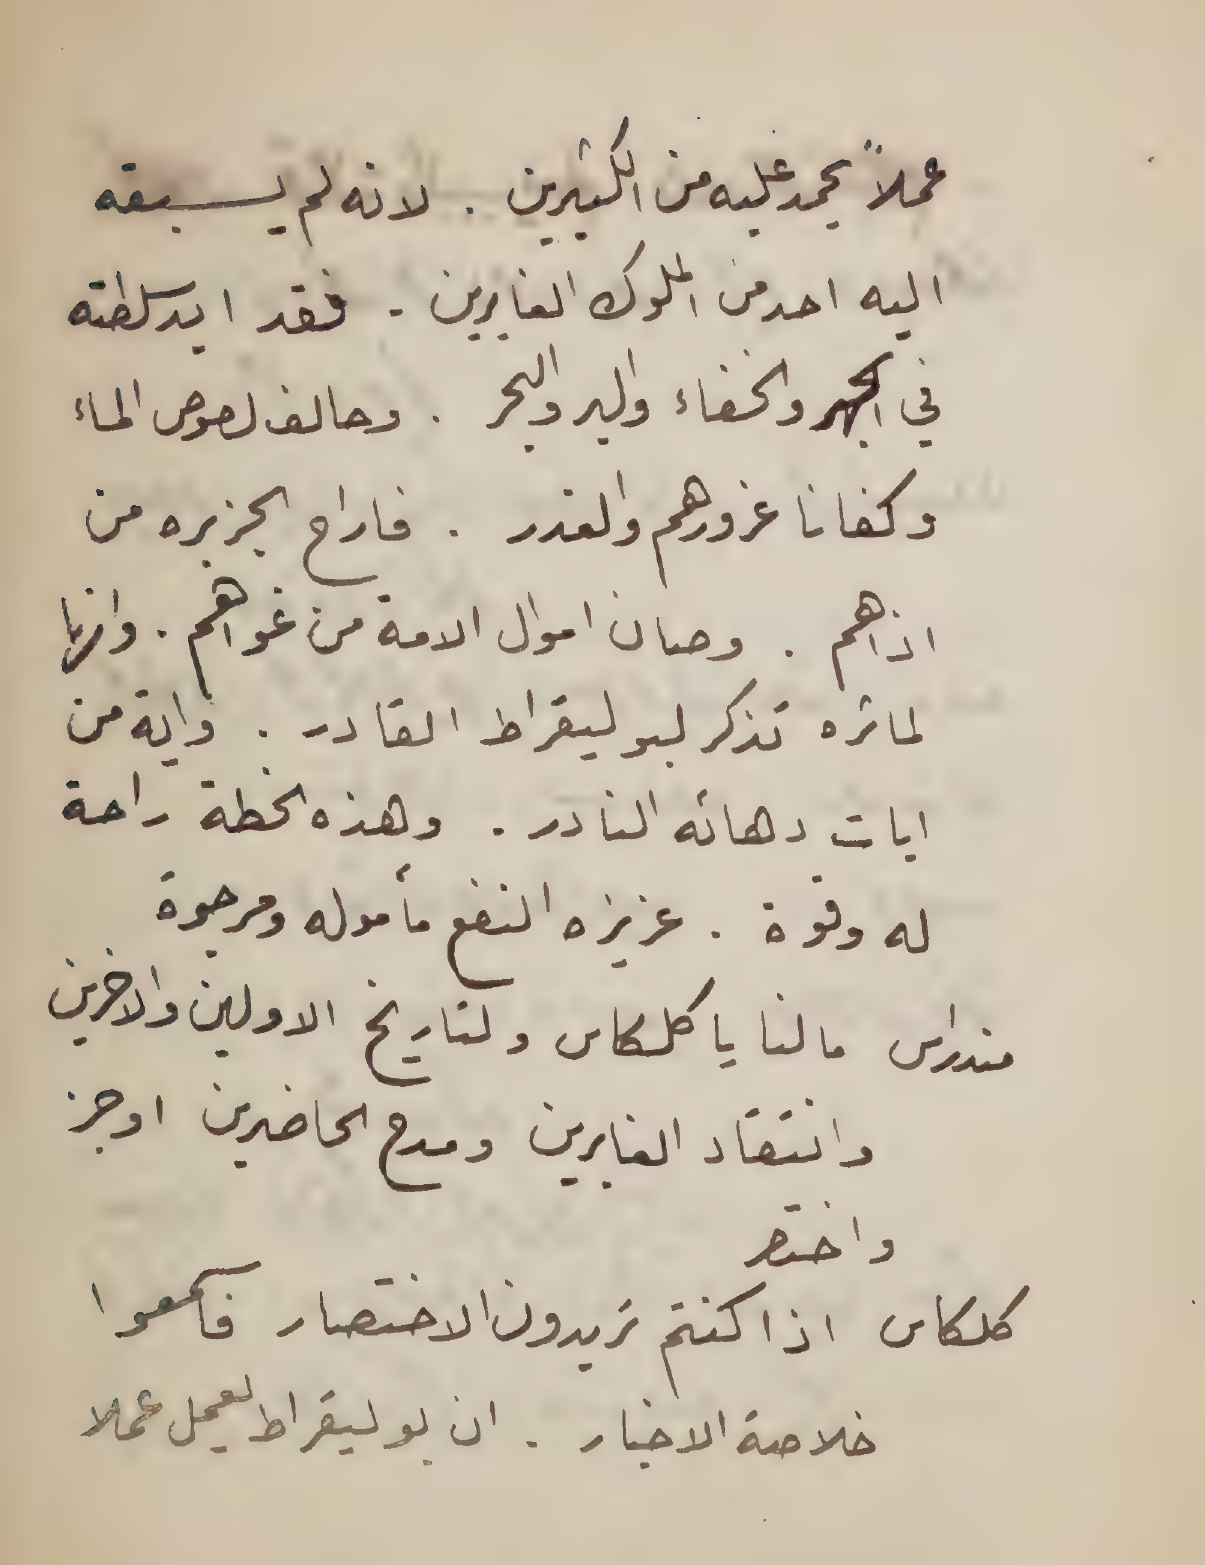 عملاً يحمد عليه من الكثيرين . لانه لم يسبقه
اليه احد من الملوك الغابرين . فقد ايد سلطته
في الجهر والخفاء والبر والبحر . وحالف لصوص الماء
وكفانا غرورهم والغدر . فاراح الجزيره من
اذاهم . وصان اموال الامة من غواهم . وانها
لماثره تذكر لبوليقراط القادر . واية من
ايات دهائه النادر . وهذه الخطة راحة
له وقوة . عزيزه النفع مأموله ومرجوة
مندراس ما لنا يا كلكاس ولتاريخ الاولين والاخرين
وانتقاد الغابرين ومدح الحاضرين اوجز
واختصر
كلكاس اذا كنتم تريدون الاختصار فاسمعوا
خلاصة الاخبار . ان بوليقراط لعمل عملا